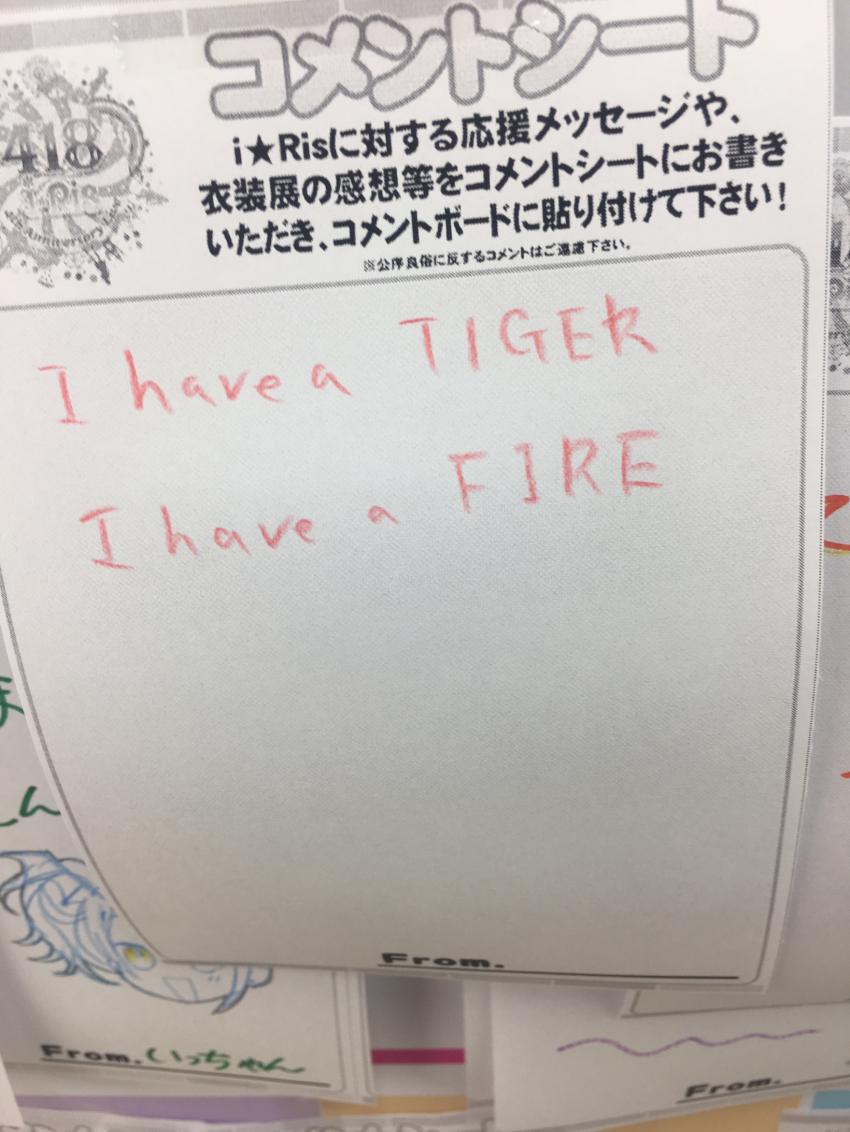 コメントシート
418
i☆Ris
4th Anniversary
i★Risに対する応援メッセージや、
衣装展の感想等をコメントシートにお書き
いただき、コメントボードに貼り付けて下さい!
※公序良俗に反するコメントはご遠慮下さい。
I have a TIGER
I have a FIRE
From.
From.いっちゃん
From.